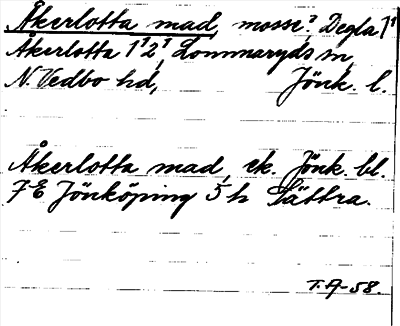 Åkerlotta mad, mosse? Degla 1¹
Åkerlotta 1¹2¹, Lommaryds sn,
N. Vedbo hd, Jönk. l.
Åkerlotta mad, ek. Jönk. bl.
7E Jönköping 5h Sättra.
T.A-58.